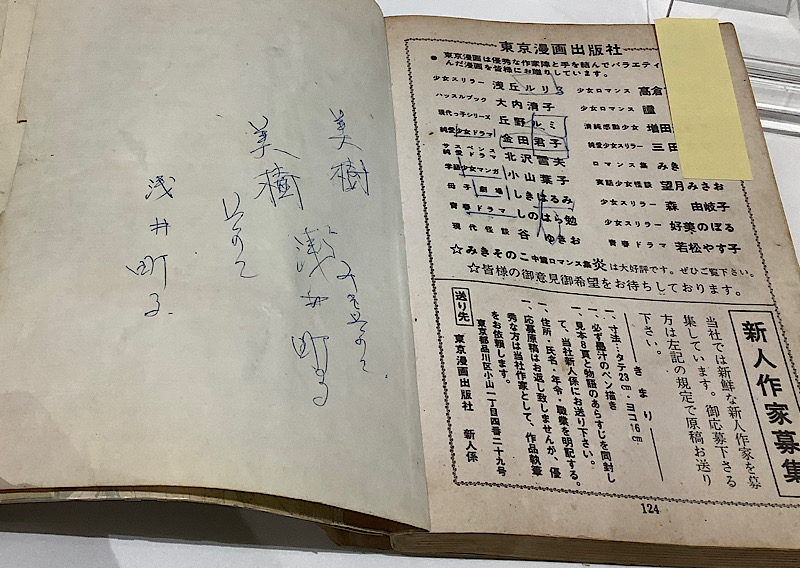 東京漫画出版社
● 東京漫画は優秀な作家陣と手を結んでバラエティ
んだ漫画を皆様にお贈りしています。
少女スリラー 浅丘ルリ
ハッスルブック 大内清子
現代っ子シリーズ 丘野ルミ
純愛少女ドラマ 金田君子
サスペンス 純愛ドラマ 北沢雪夫
学園少女マンガ 小山葉子
母子劇場 しきはるみ
青春ドラマ しのはら勉
現代怪談 谷ゆきお
少女ロマンス 高倉
少女ロマンス
清純感動少女 増田
純愛少女スリラー 三田
ロマンス集 みき
実話少女怪談 望月みさお
少女スリラー 森由岐子
少女スリラー 好美のぼる
青春ドラマ 若松やす子
☆みきそのこ中篇ロマンス集炎は大好評です。ぜひご覧下さい。
☆皆様の御意見御希望をお待ちしております。
新人作家募集
当社では新鮮な新人作家を募
集しています。御応募下さる
方は左記の規定で原稿お送り
下さい。
きまり
一、寸法・タテ23cm・ヨコ16cm
一、必ず墨汁のペン描き
一、見本8頁と物語のあらすじを同封し
て、当社新人係にお送り下さい。
一、住所・氏名・年令・職業を明記する。
一、応募原稿はお返し致しませんが、優
秀な方は当社作家として、作品執筆
をお依頼します。
送り先
東京都品川区小山一丁目四番二十九号
東京漫画出版社 新人係
124
美樹
美樹
浅井町子
浅井町子